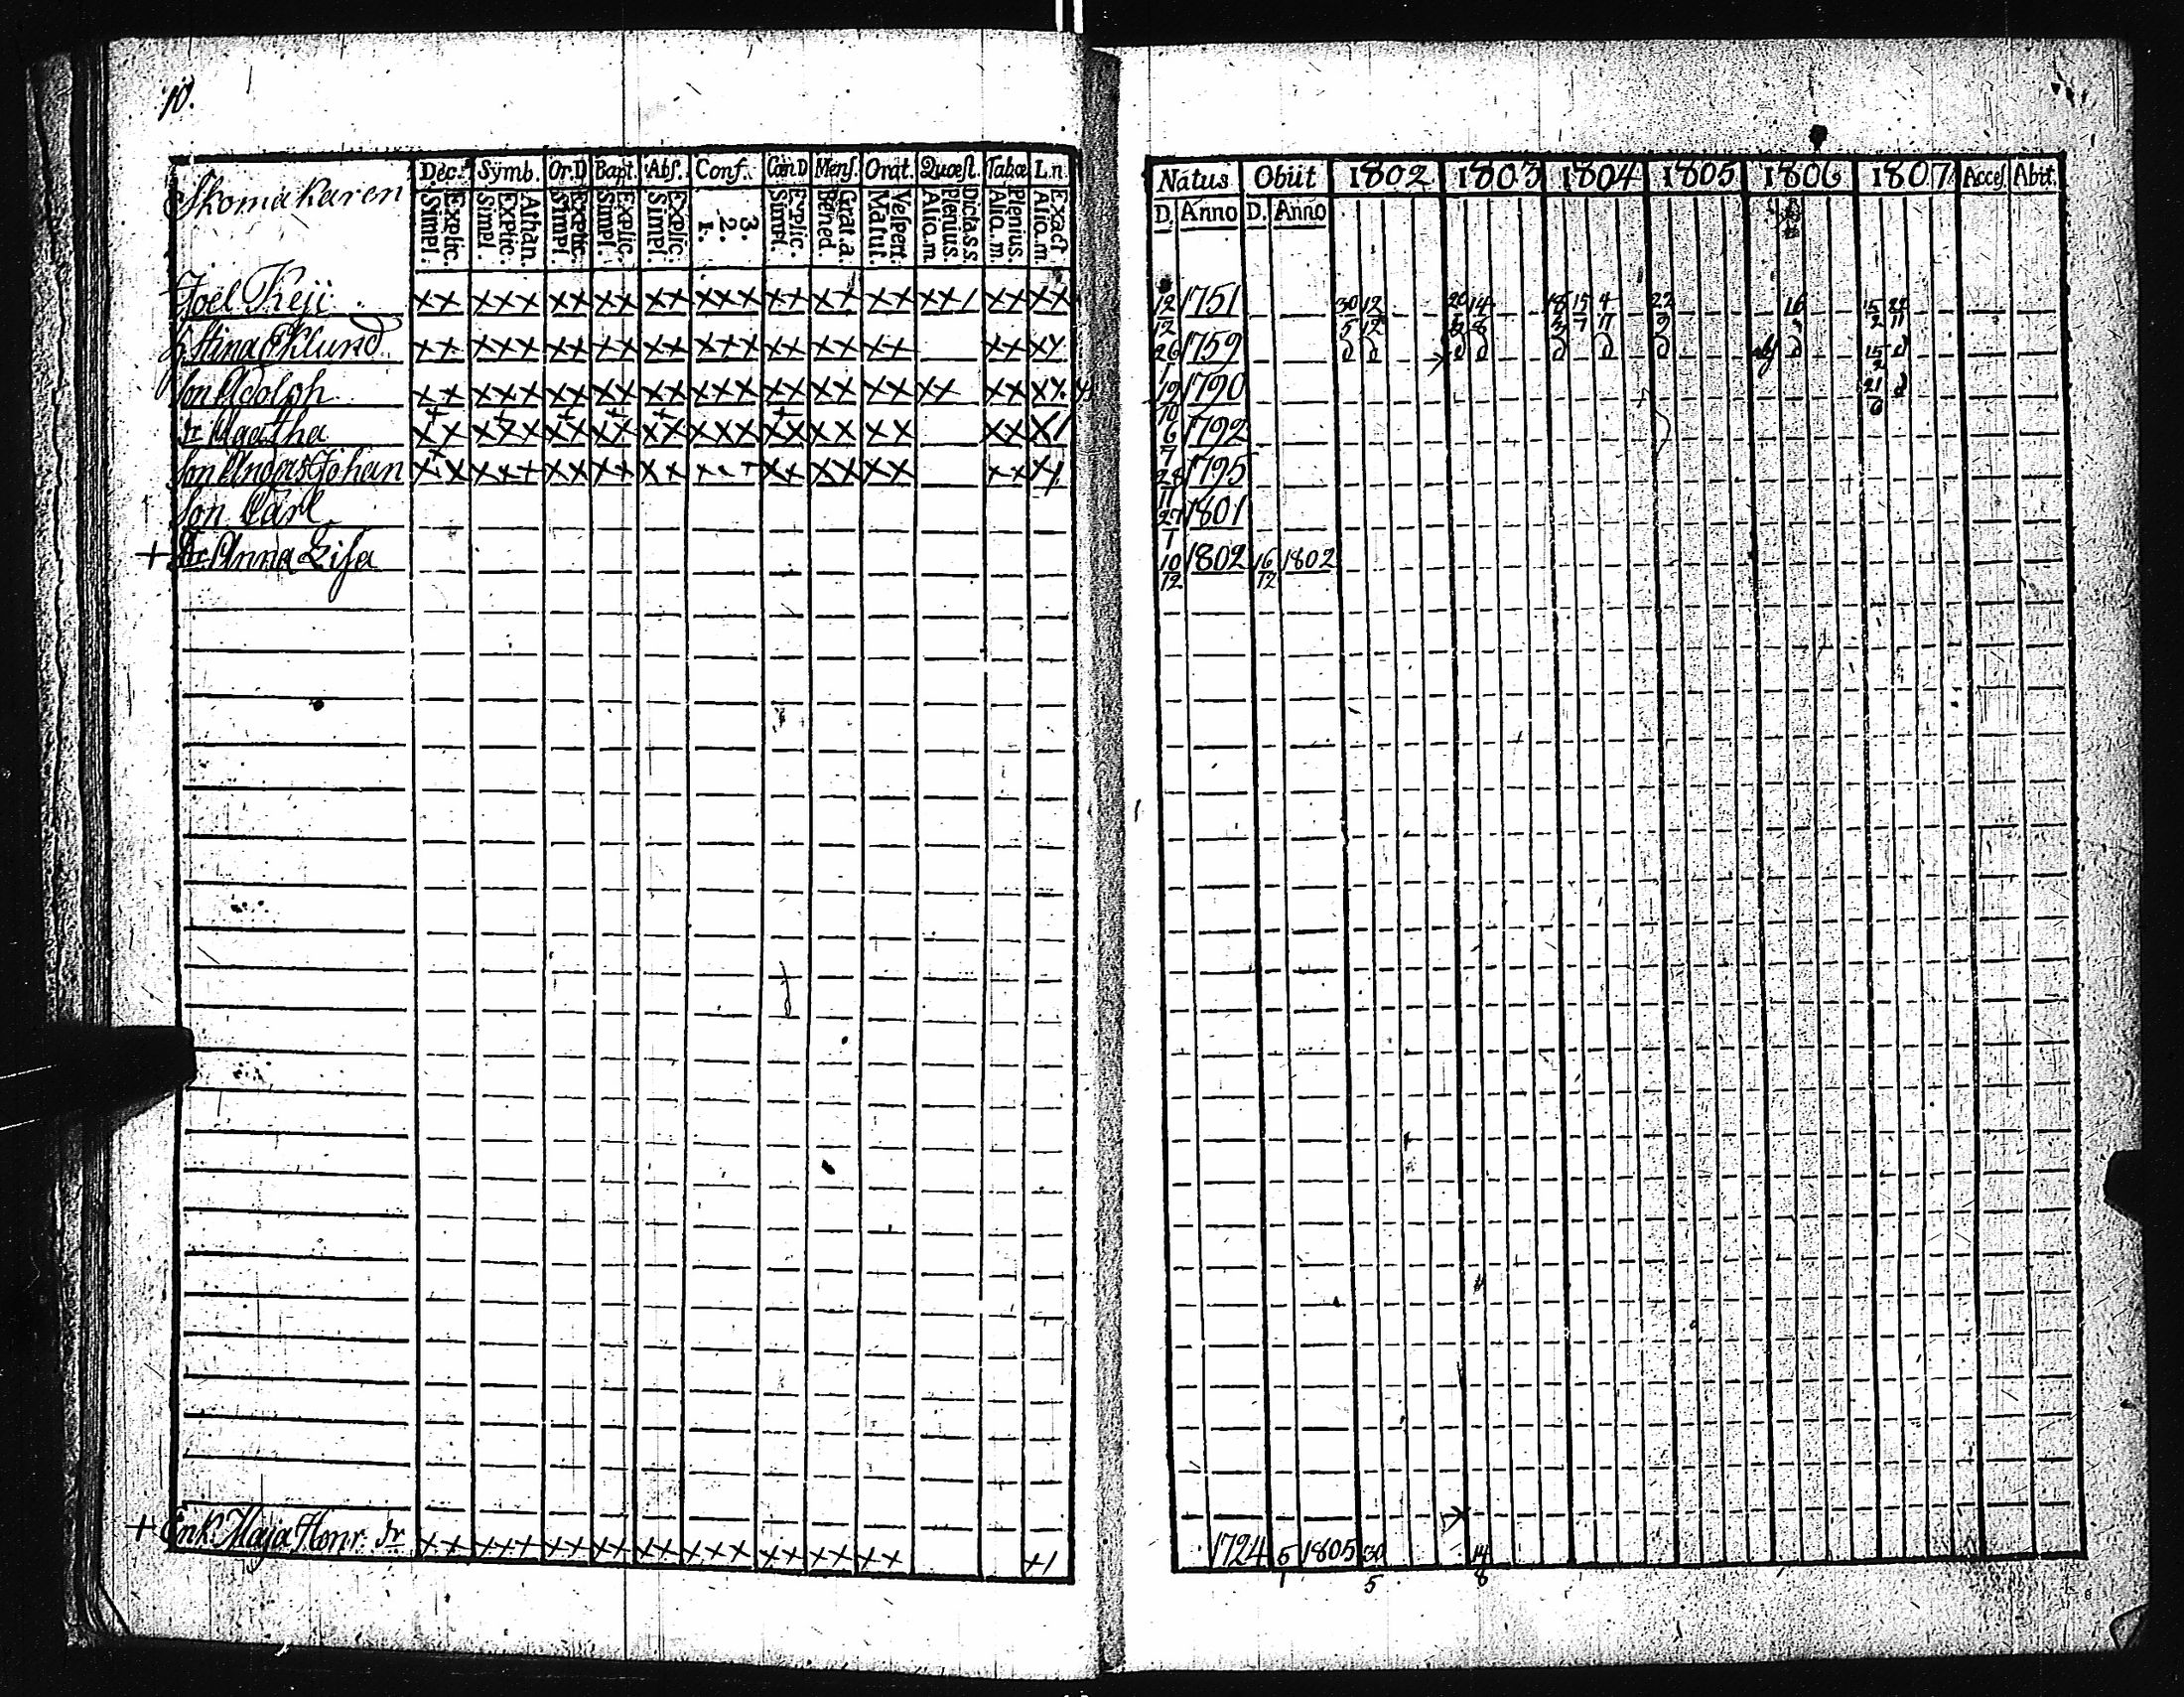 10.
Skomakaren
Dec. Symb. Or.D Bapt. Abs. Conf. Cœn D Mens. Orat. Quæst. Tabæ L.n.
Explic. Simpl. Athan. Explic. Simpl. Explic. Simpl. Explic. Simpl. Explic. Simpl. 3. 2. 1. Explic. Simpl. Grat. a. Bened. Vespert. Matut. Dicta s.s. Plenius. Aliq.m. Plenius. Aliq.m. Exact Aliq.m.
Joel Keji xx xxx xx xx xx xxx xx xx xx xx/ xx xx
H. Stina Eklund xx xxx xx xx xx xxx xx xx xx xx x/.
Son Adolph xx xxx xx xx xx xxx xx xx xx xx xx x/.
Dr Agatha xx xxx xx xx xx xxx xx xx xx xx x/
Son Anders Johan xx xxx xx xx xx xx xx xx xx x/.
Son Carl
+ Dr Anna Lisa
+ Enk. Maja Henr. dr xx xxx xx xx xx xxx xx xx xx x/
Natus Obiit 1802 1803 1804 1805 1806 1807 Acces. Abit.
D. Anno D. Anno
12/12 1751 30/5 12/12 20/2 14/8 18/3 15/7 4/11 22/9 16 15/2 22/11
26/1 1759 d d d d d d d d 15/2 d
19/10 1790 21/6 d
6/7 1792
28/11 1795
27/1 1801
10/12 1802 16/12 1802
1724 5/1 1805 30/5 14/8